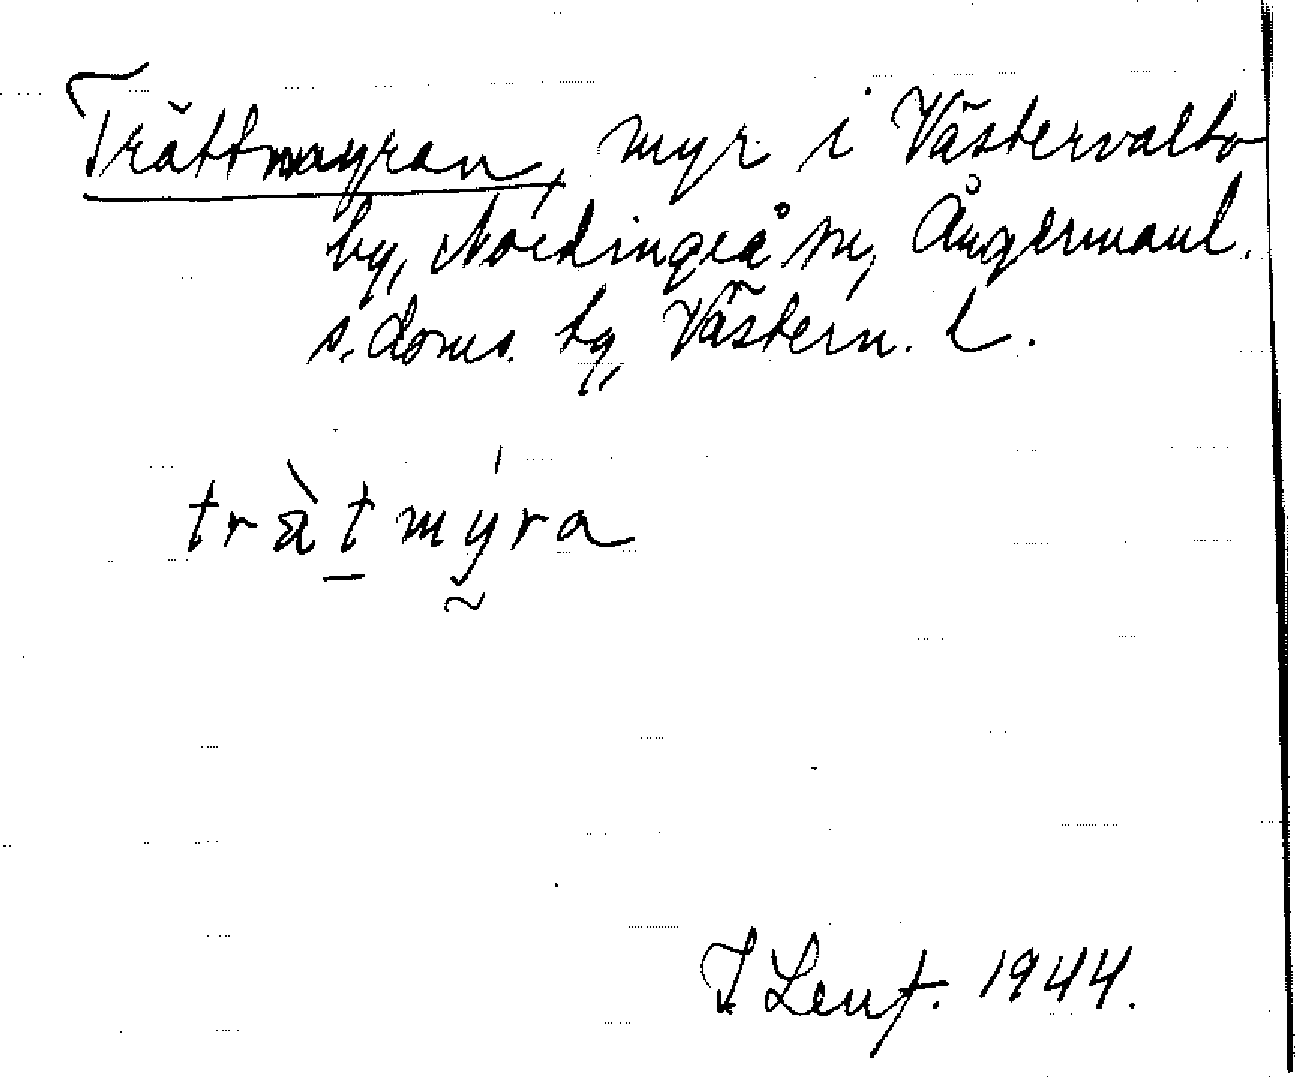 Trättmyran, myr i Västervalto
by, Nordingrå sn, Ångermanl.
s. doms. tg, Västern. l.
trä̀tmýra
J Lenf. 1944.